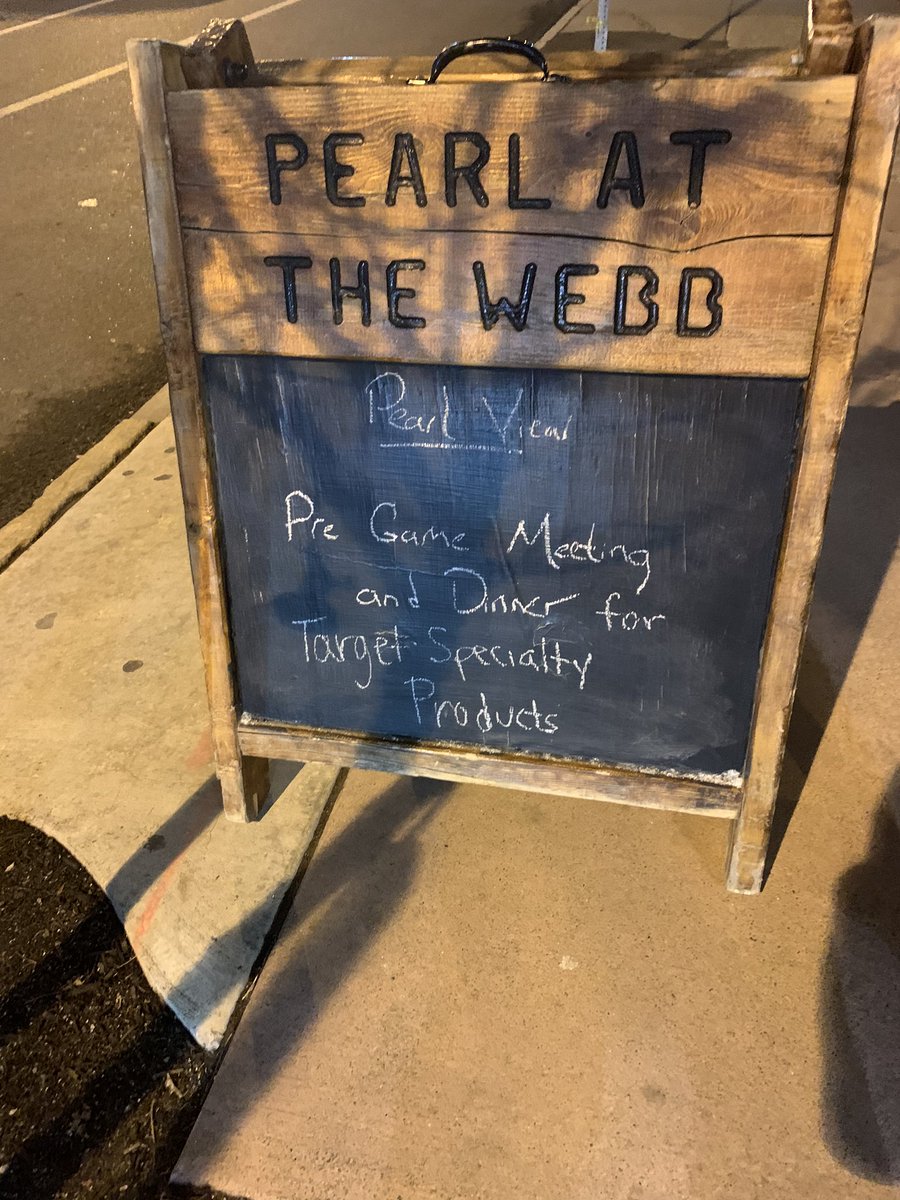 PEARL AT
THE WEBB
Pearl View
Pre Game Meeting
and Dinner for
Target Specialty
Products